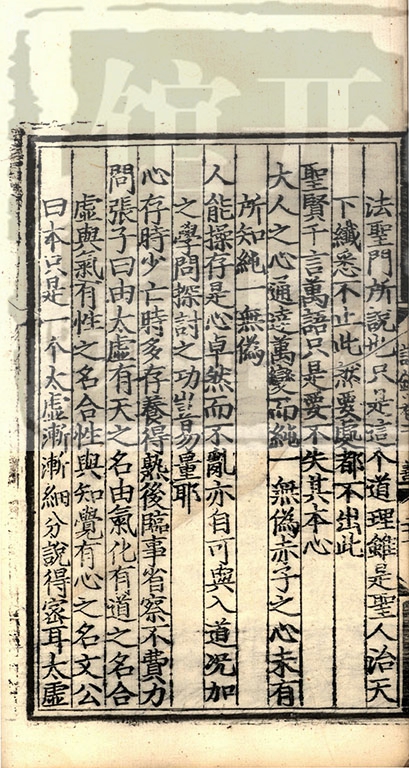 法聖門所說也只是這个道理雖是聖人治天
下纎悉不止此然要處都不出此
聖賢千言萬語只是要不失其本心
大人之心通達萬變而純一無偽赤子之心未有
所知純一無偽
人能操存是心卓然而不亂亦自可與入道况加
之學問探討之功豈易量耶
心存時少亡時多存養得熟後臨事省察不費力
問張子曰由太虛有天之名由氣化有道之名合
虛與氣有性之名合性與知覺有心之名文公
曰本只是一个太虛漸漸細分說得宻耳太虛